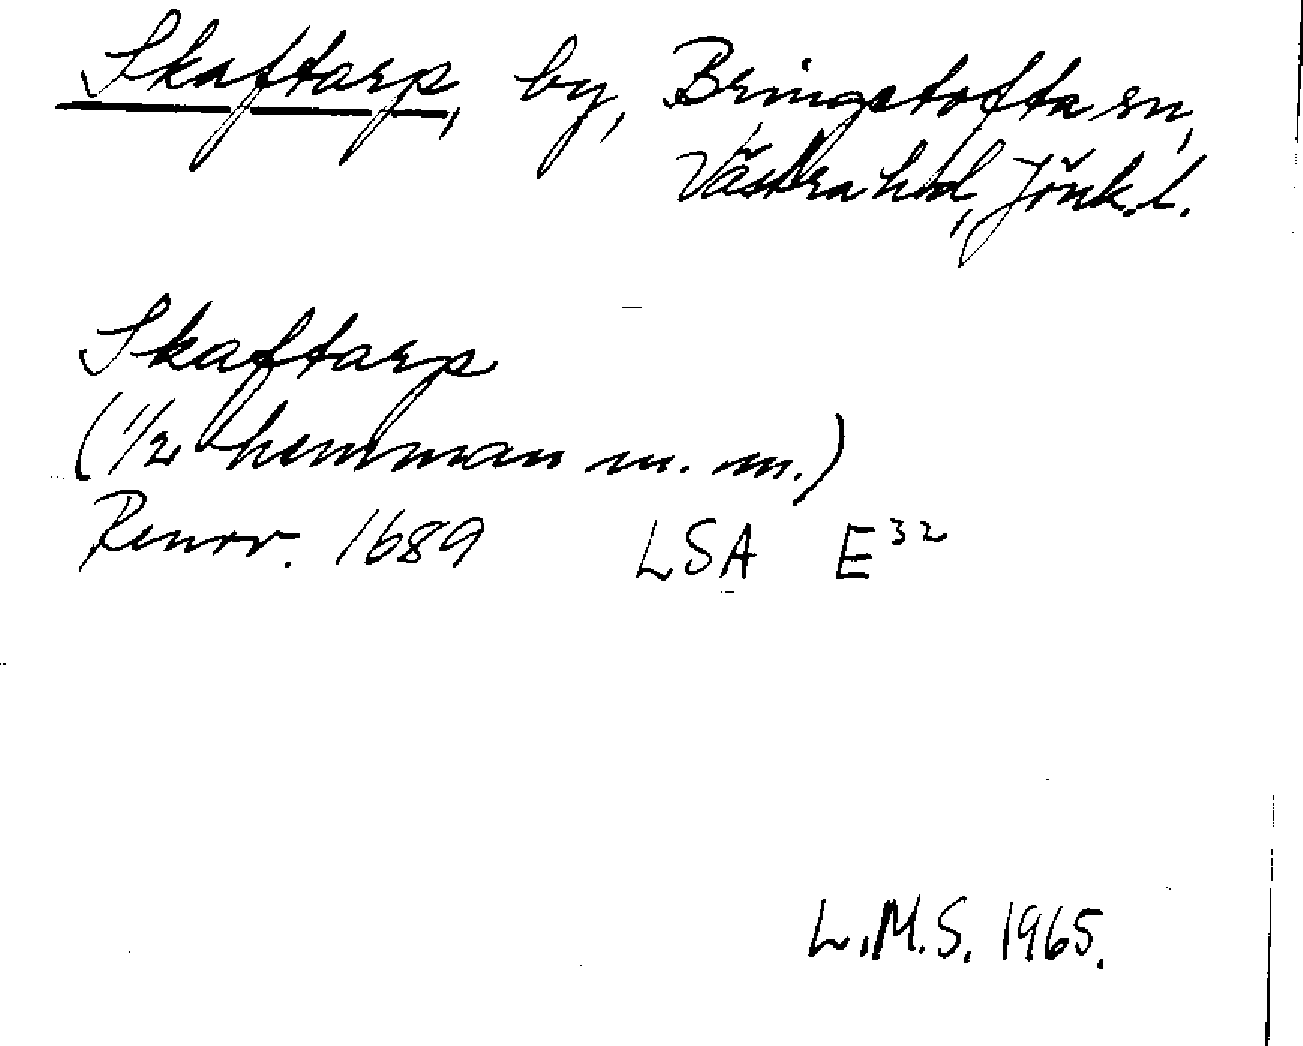 Skaftarp, by, Bringstofta sn,
Västra hd, Jönk. l.
Skaftarp
(1/2 hemman m. m.)
Renov. 1689 LSA E³²
L.M.S. 1965.